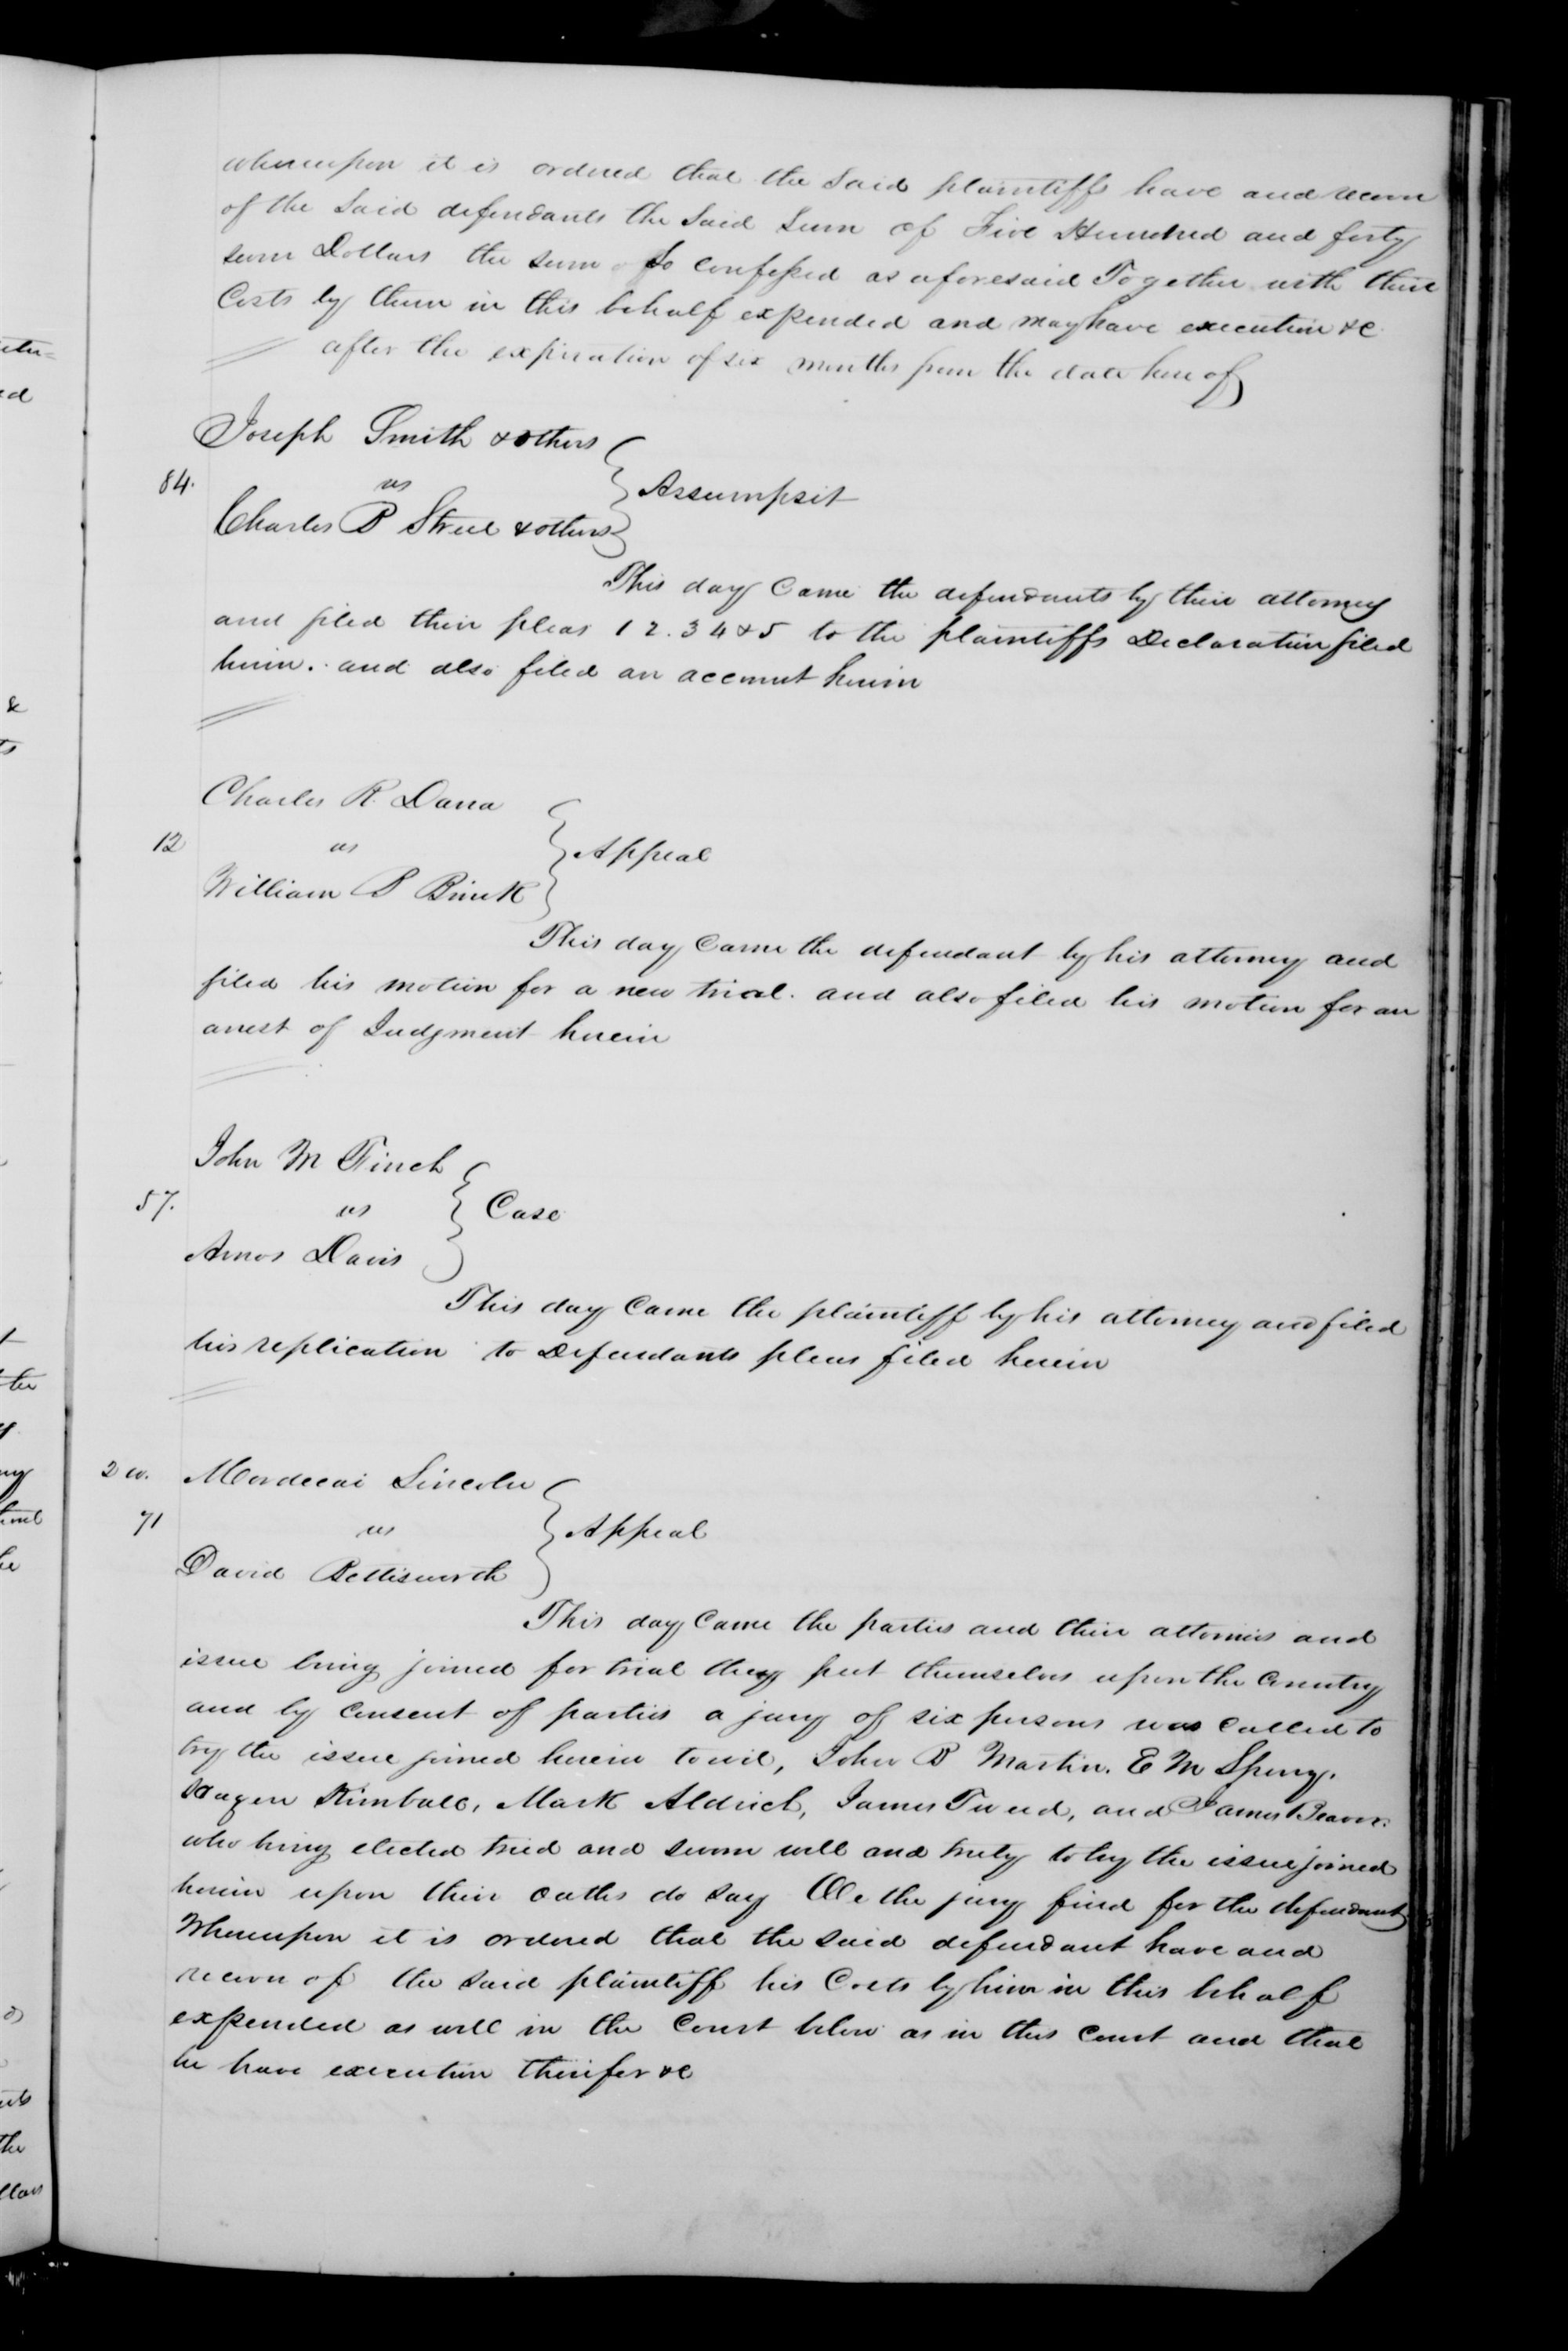 whereupon it is ordered that the Said plaintiffs have and recover
of the Said defendants the Said Sum of Five Hundred and forty
seven Dollars the sum So confessed as aforesaid Together with their
Costs by them in this behalf expended and may have execution &c
after the expiration of six months from the date hereof
Joseph Smith & others
84. vs } Assumpsit
Charles B Street & others
This day Came the defendants by their attorney
and filed their pleas 1 2. 3 4 & 5 to the plaintiffs Declaration filed
herein. and also filed an account herein
Charles R. Dana
12 vs } Appeal
William B Brink
This day Came the defendant by his attorney and
filed his motion for a new trial. and also filed his motion for an
arrest of Judgment herein
John M Finch
57. vs } Case
Amos Davis
This day Came the plaintiff by his attorney and filed
his replication to Defendants pleas filed herein
Mordecai Lincoln
71 vs } Appeal
David Bettisworth
This day Came the parties and their attornies and
issue being joined for trial they put themselves upon the Country
and by Consent of parties a jury of six persons was Called to
try the issue joined herein towit, John B Martin. E M Spery.
Hazen Kimball, Mark Aldrich, James Tweed, and James Beaver.
who being elected tried and sworn well and truly to try the issue joined
herein upon their oaths do say We the jury find for the defendant
Whereupon it is ordered that the said defendant have and
recover of the Said plaintiff his Costs by him in this behalf
expended as well in the Court below as in this Court and that
he have execution therefor &c